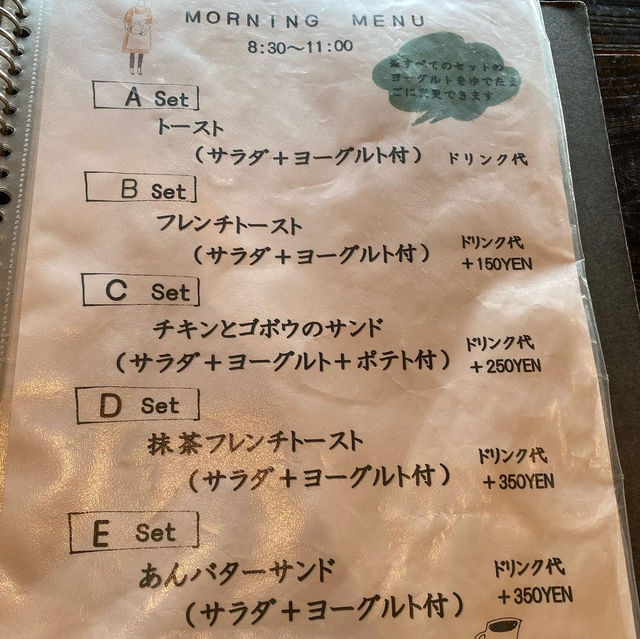 MORNING MENU
8:30～11:00
※すべてのセットの
ヨーグルトをゆでたま
ごに変更できます
A Set
トースト
（サラダ＋ヨーグルト付） ドリンク代
B Set
フレンチトースト
（サラダ＋ヨーグルト付） ドリンク代
＋150YEN
C Set
チキンとゴボウのサンド
（サラダ＋ヨーグルト＋ポテト付） ドリンク代
＋250YEN
D Set
抹茶フレンチトースト
（サラダ＋ヨーグルト付） ドリンク代
＋350YEN
E Set
あんバターサンド
（サラダ＋ヨーグルト付） ドリンク代
＋350YEN